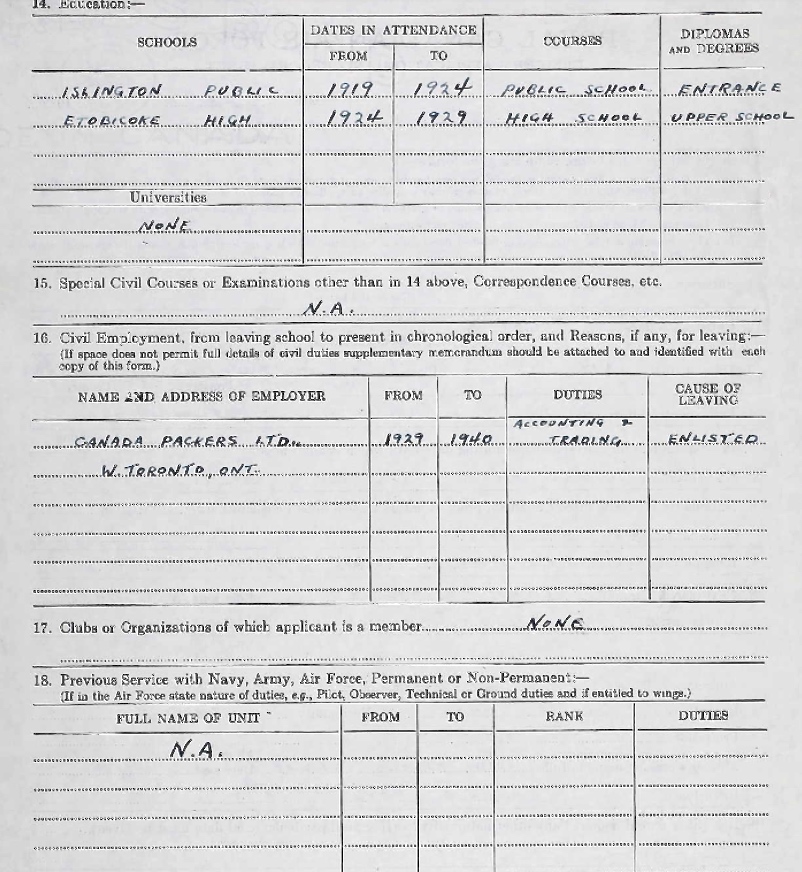 14. Education:—
SCHOOLS DATES IN ATTENDANCE COURSES DIPLOMAS AND DEGREES
FROM TO
ISLINGTON PUBLIC 1919 1924 PUBLIC SCHOOL ENTRANCE
ETOBICOKE HIGH 1924 1929 HIGH SCHOOL UPPER SCHOOL
Universities
NONE
15. Special Civil Courses or Examinations other than in 14 above, Correspondence Courses, etc.
N.A.
16. Civil Employment, from leaving school to present in chronological order, and Reasons, if any, for leaving:—
(If space does not permit full details of civil duties supplementary memorandum should be attached to and identified with each
copy of this form.)
NAME AND ADDRESS OF EMPLOYER FROM TO DUTIES CAUSE OF LEAVING
ACCOUNTING &
CANADA PACKERS LTD. 1929 1940 TRADING ENLISTED
W. TORONTO, ONT.
17. Clubs or Organizations of which applicant is a member NONE
18. Previous Service with Navy, Army, Air Force, Permanent or Non-Permanent:—
(If in the Air Force state nature of duties, e.g., Pilot, Observer, Technical or Ground duties and if entitled to wings.)
FULL NAME OF UNIT FROM TO RANK DUTIES
N.A.